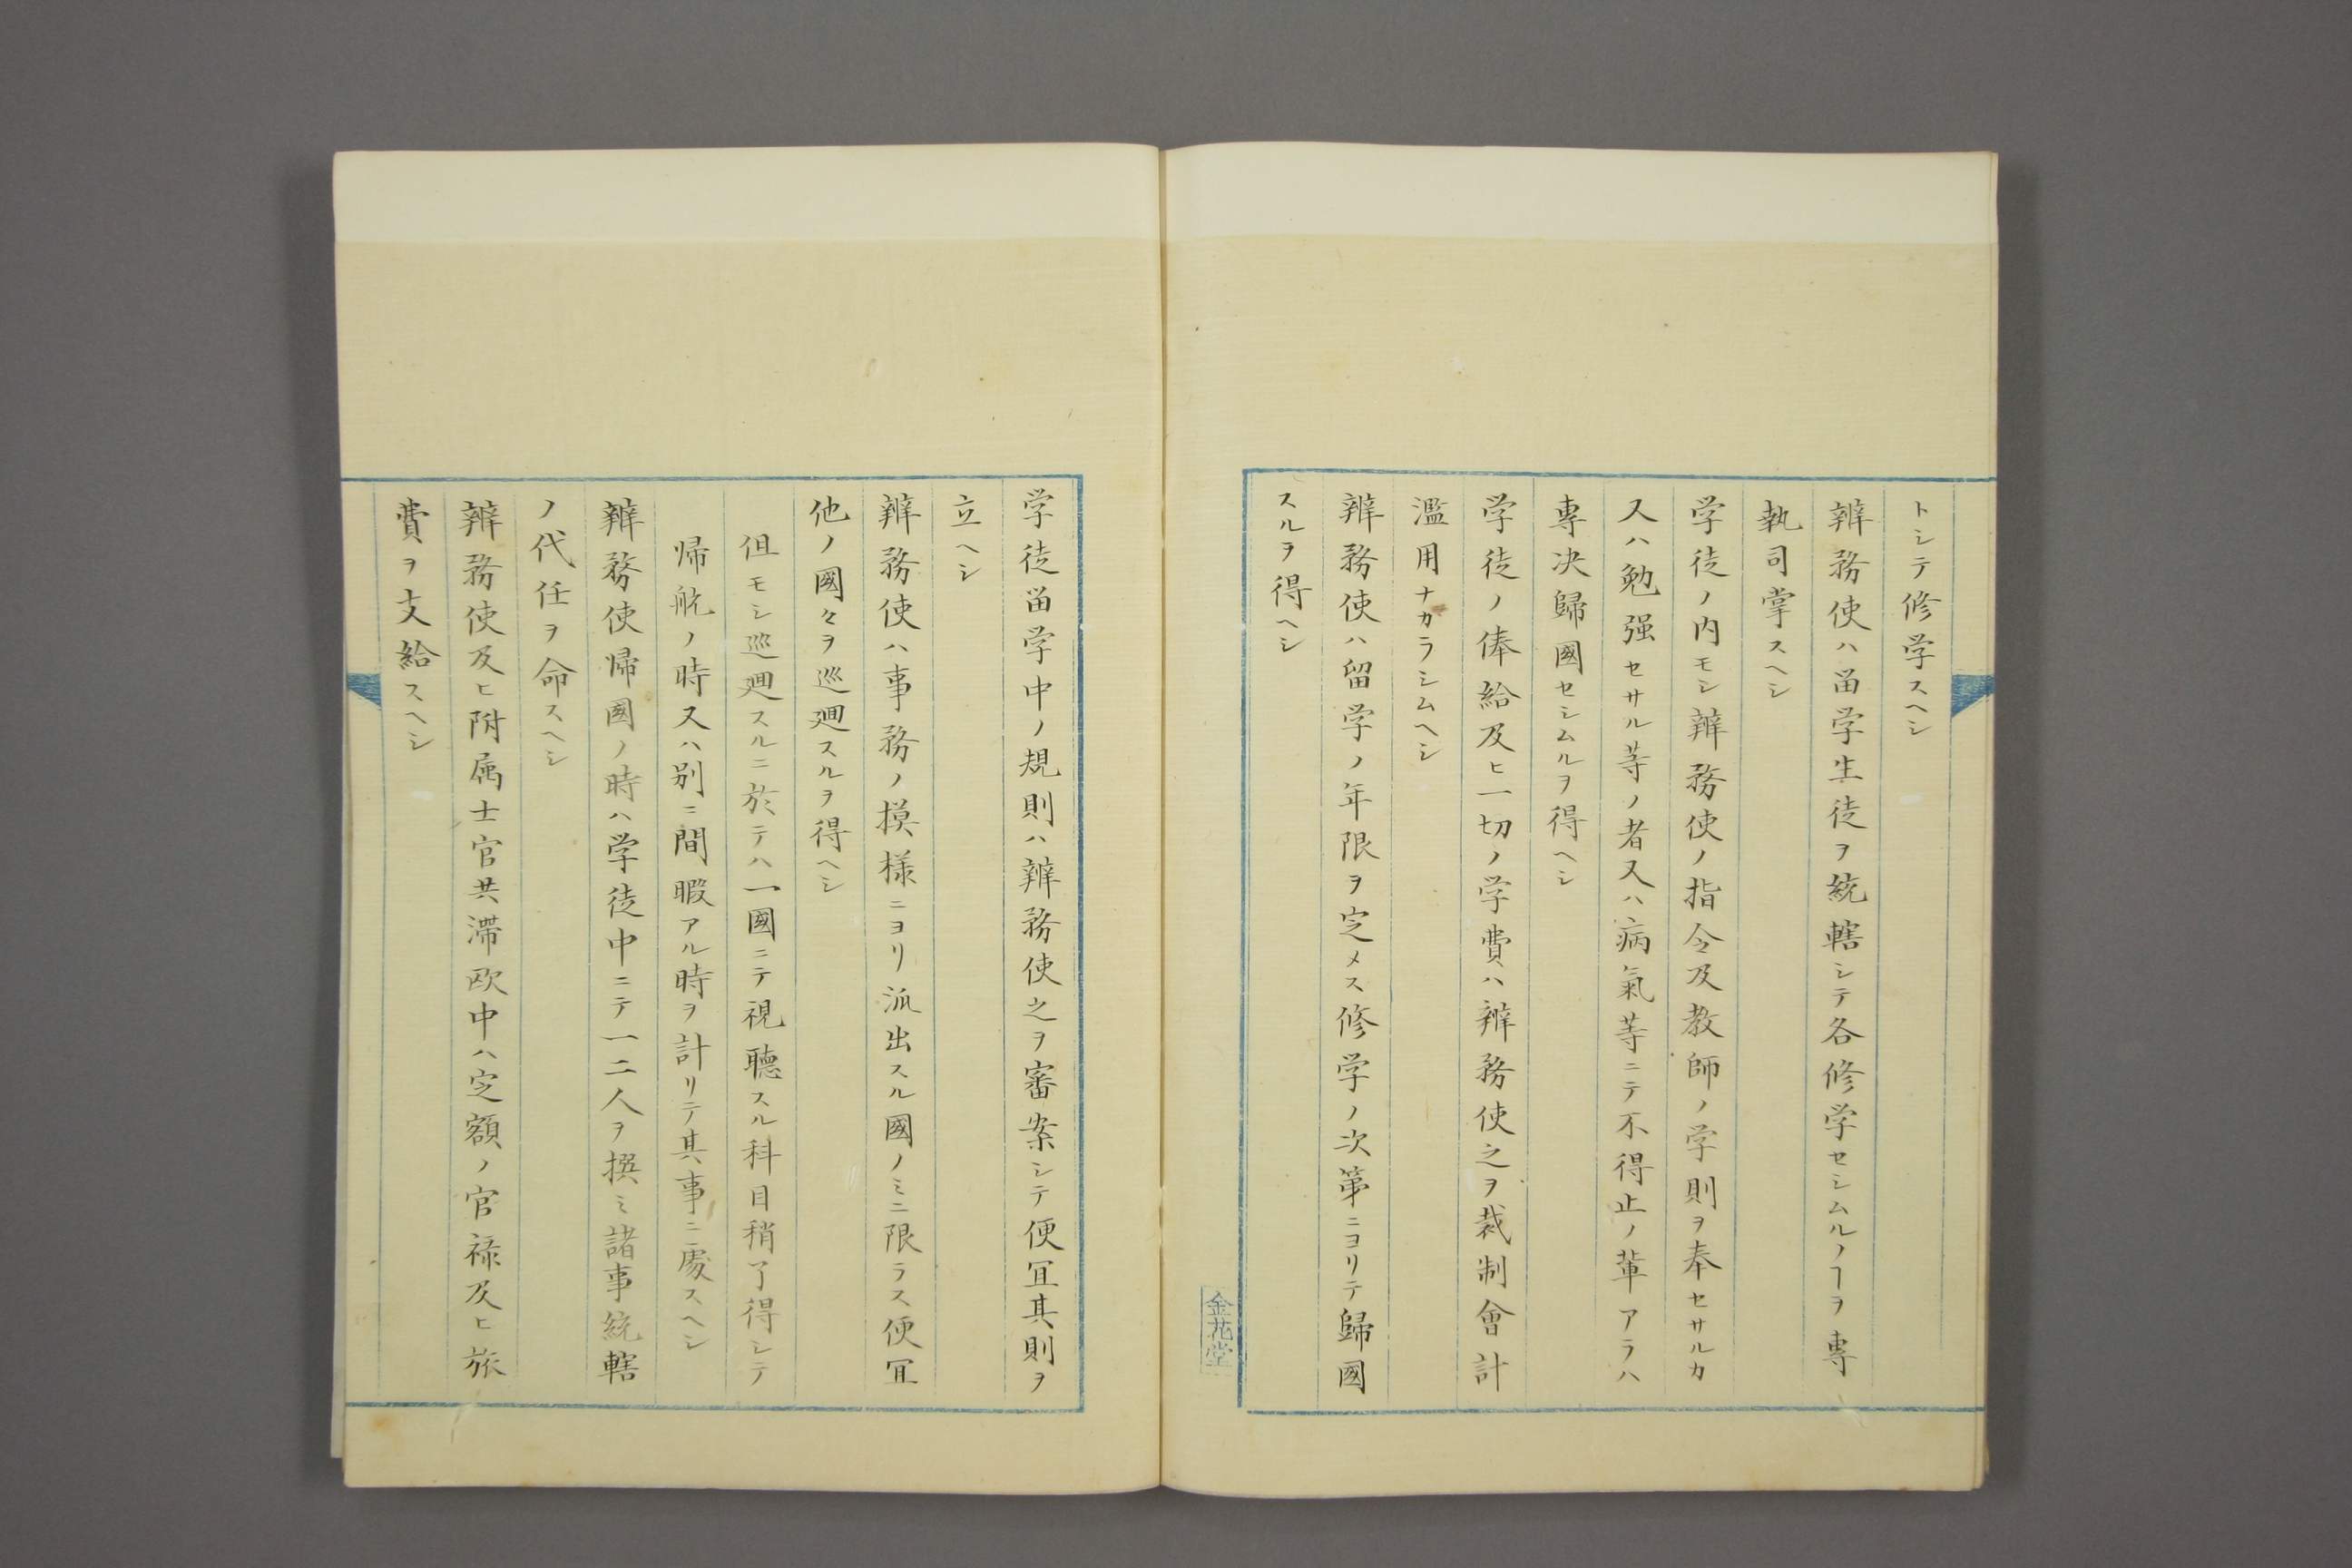 トシテ修学スヘシ
辨務使ハ畄学生徒ヲ統轄シテ各修学セシムルノヿヲ專
執司掌スヘシ
学徒ノ内モシ辨務使ノ指令及教師ノ学則ヲ奉セサルカ
又ハ勉强セサル等ノ者又ハ病氣等ニテ不得止ノ輩アラハ
專决歸國セシムルヲ得ヘシ
学徒ノ俸給及ヒ一切ノ学費ハ辨務使之ヲ裁制會計
濫用ナカラシムヘシ
辨務使ハ留学ノ年限ヲ定メス修学ノ次第ニヨリテ歸國
スルヲ得ヘシ
金花堂
学徒畄学中ノ規則ハ辨務使之ヲ審案シテ便冝其則ヲ
立ヘシ
辨務使ハ事務ノ摸様ニヨリ派出スル國ノミニ限ラス便冝
他ノ國々ヲ巡廻スルヲ得ヘシ
但モシ巡廻スルニ於テハ一國ニテ視聽スル科目稍了得シテ
帰航ノ時又ハ別ニ間暇アル時ヲ計リテ其事ニ處スヘシ
辨務使帰國ノ時ハ学徒中ニテ一二人ヲ撰ミ諸事統轄
ノ代任ヲ命スヘシ
辨務使及ヒ附属士官共滯欧中ハ定額ノ官禄及ヒ旅
費ヲ支給スヘシ